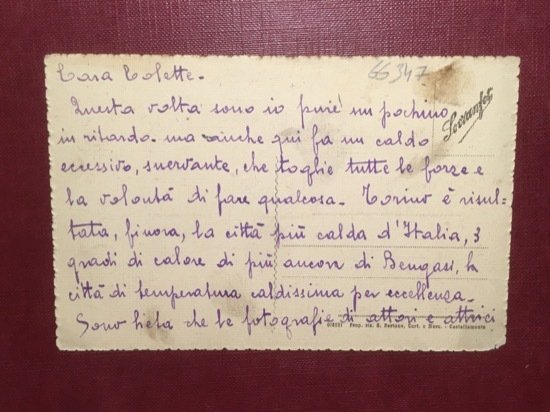 66347
Cara Colette.
Questa volta sono io purie un pochino
in ritardo. ma anche qui fa un caldo
eccessivo, snervante, che toglie tutte le forze e
la volontà di fare qualcosa. Torino è risul-
tata, finora, la città più calda d'Italia, 3
gradi di calore di più ancora di Bengasi, la
città di temperatura caldissima per eccellenza.
Sono lieta che le fotografie di attori e attrici
Prop. ris. S. Bertone, Cart. e Merc. - Castellamonte